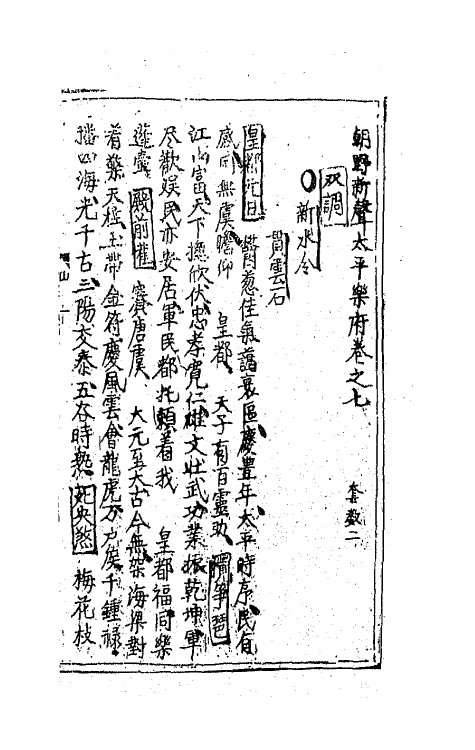 朝野新聲太平樂府卷之七 套数二
双調
新水令
貫雲石
皇都元日 鬱葱佳氣藹寰區慶豊年太平時序民有
感國無虞瞻仰 皇都 天子有百靈助 攪箏琶
江山富天下揔欣伏忠孝寛仁雄文壮武功業振乾坤軍
尽歡娯民亦安居軍民都托賴着我 皇都福同樂
蓬壷 殿前歡 賽唐虞 大元至大古今無架海梁對
着檠天柱玉帶金符慶風雲會龍虎万户侯千鍾禄
播四海光千古三陽交泰五谷時熟 死央煞 梅花枝